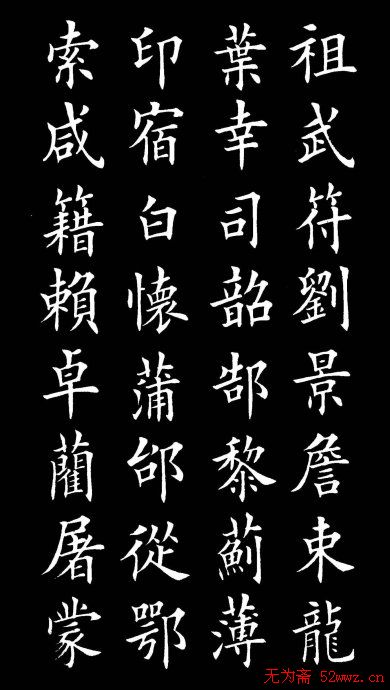 祖武符劉景詹束龍
葉幸司韶郜黎薊薄
印宿白懷蒲邰從鄂
索咸籍賴卓藺屠蒙
无为斋 52wwz.cn